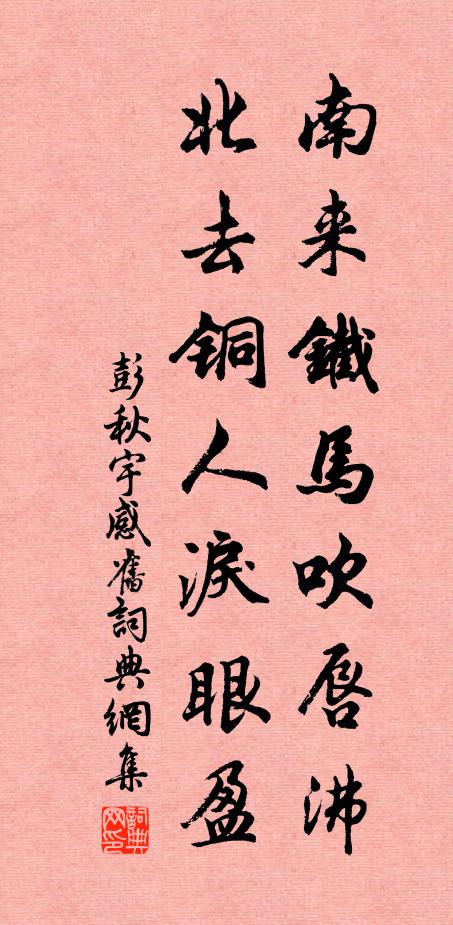 南来鐵馬吹唇沸
北去铜人淚眼盈
彭秋宇感舊詞典網集
詞典网印